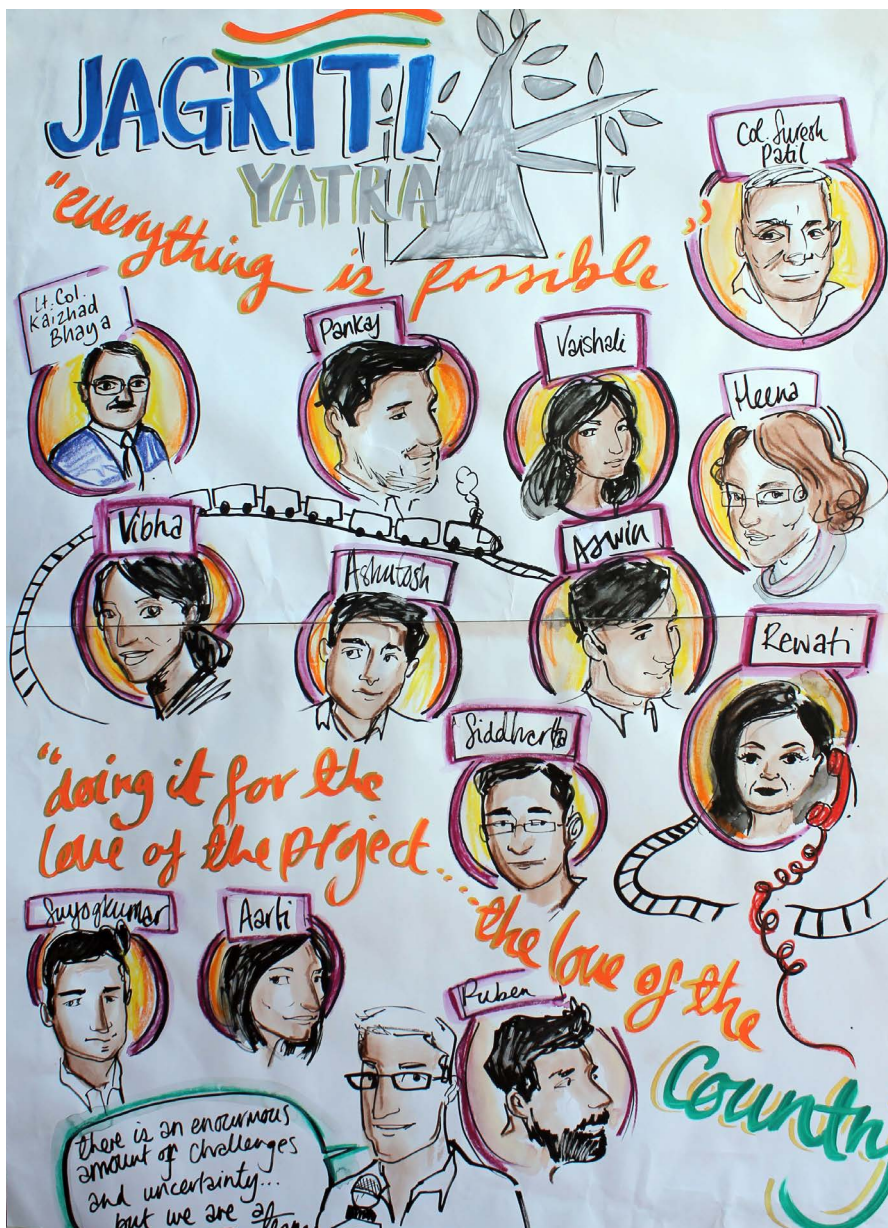 JAGRITI
YATRA
"everything is possible"
Col. Suresh
Patil
Lt. Col.
Kaizhad
Bhaya
Pankaj
Vaishali
Meena
Vibha
Ashutosh
Aswin
Rewati
Siddhartha
"doing it for the
love of the project...
...the love of the
Country
Suyogkumar
Aarti
Ruben
there is an enourmous
amount of challenges
and uncertainty...
but we are a team